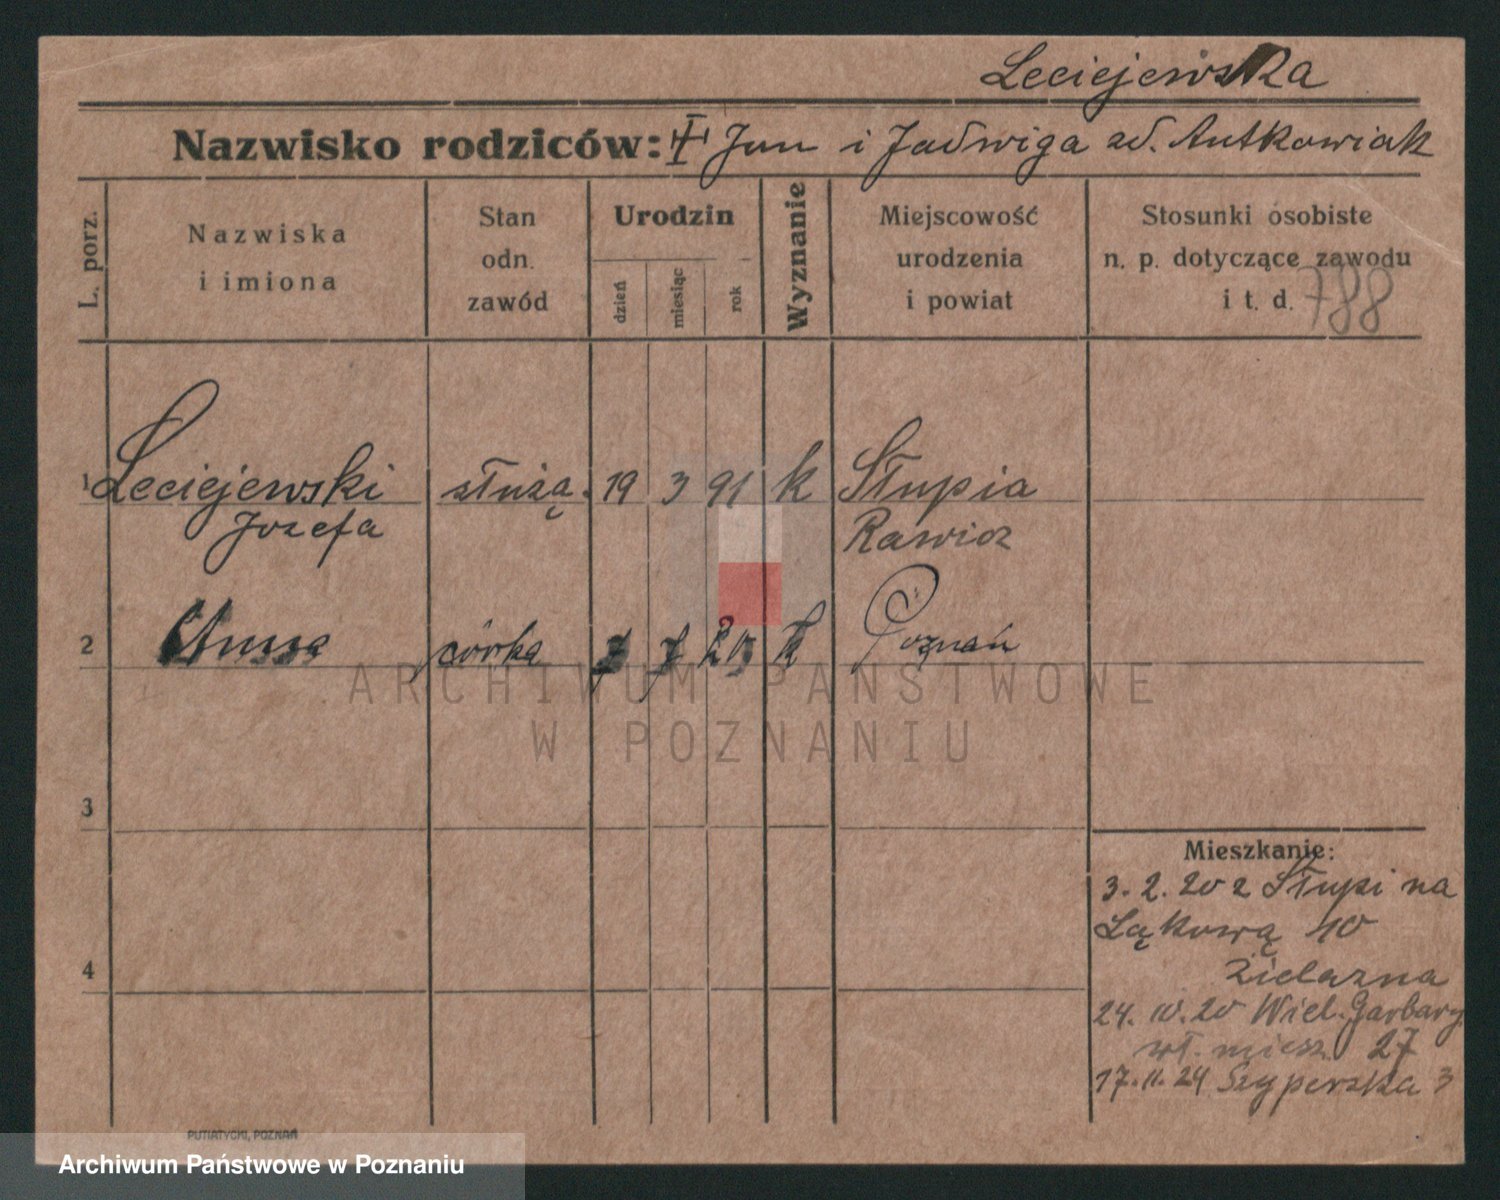 Leciejewska
Nazwisko rodziców: Jan i Jadwiga zd. Antkowiak
L. porz.
Nazwiska
i imiona
Stan
odn.
zawód
Urodzin
dzień
miesiąc
rok
Wyznanie
Miejscowość
urodzenia
i powiat
Stosunki osobiste
n. p. dotyczące zawodu
i t. d. 788
1 Leciejewski służą. 19 3 91 k Słupia
Józefa Rawicz
2 Anna córka 7 7 20 k Poznań
ARCHIWUM PAŃSTWOWE
W POZNANIU
3
Mieszkanie:
3. 2. 20 z Słupi na
Łąkową 10
4
Zielazna
24. IV. 20 Wiel. Garbary
wł. miesz. 27
17. 11. 24 Szyperska 3
PUTIATYCKI, POZNAŃ
Archiwum Państwowe w Poznaniu